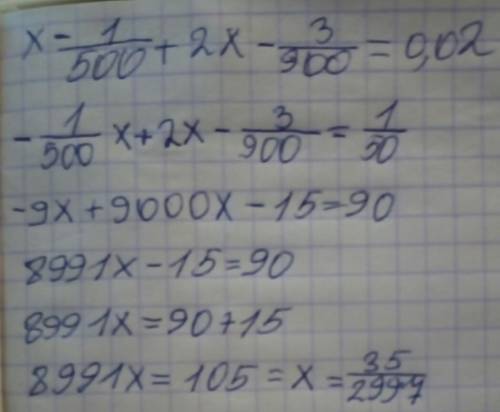 x - 1/500 + 2x - 3/900 = 0,02
- 1/500 x + 2x - 3/900 = 1/50
-9x + 9000x - 15 = 90
8991x - 15 = 90
8991x = 90 + 15
8991x = 105 = x = 35/2997